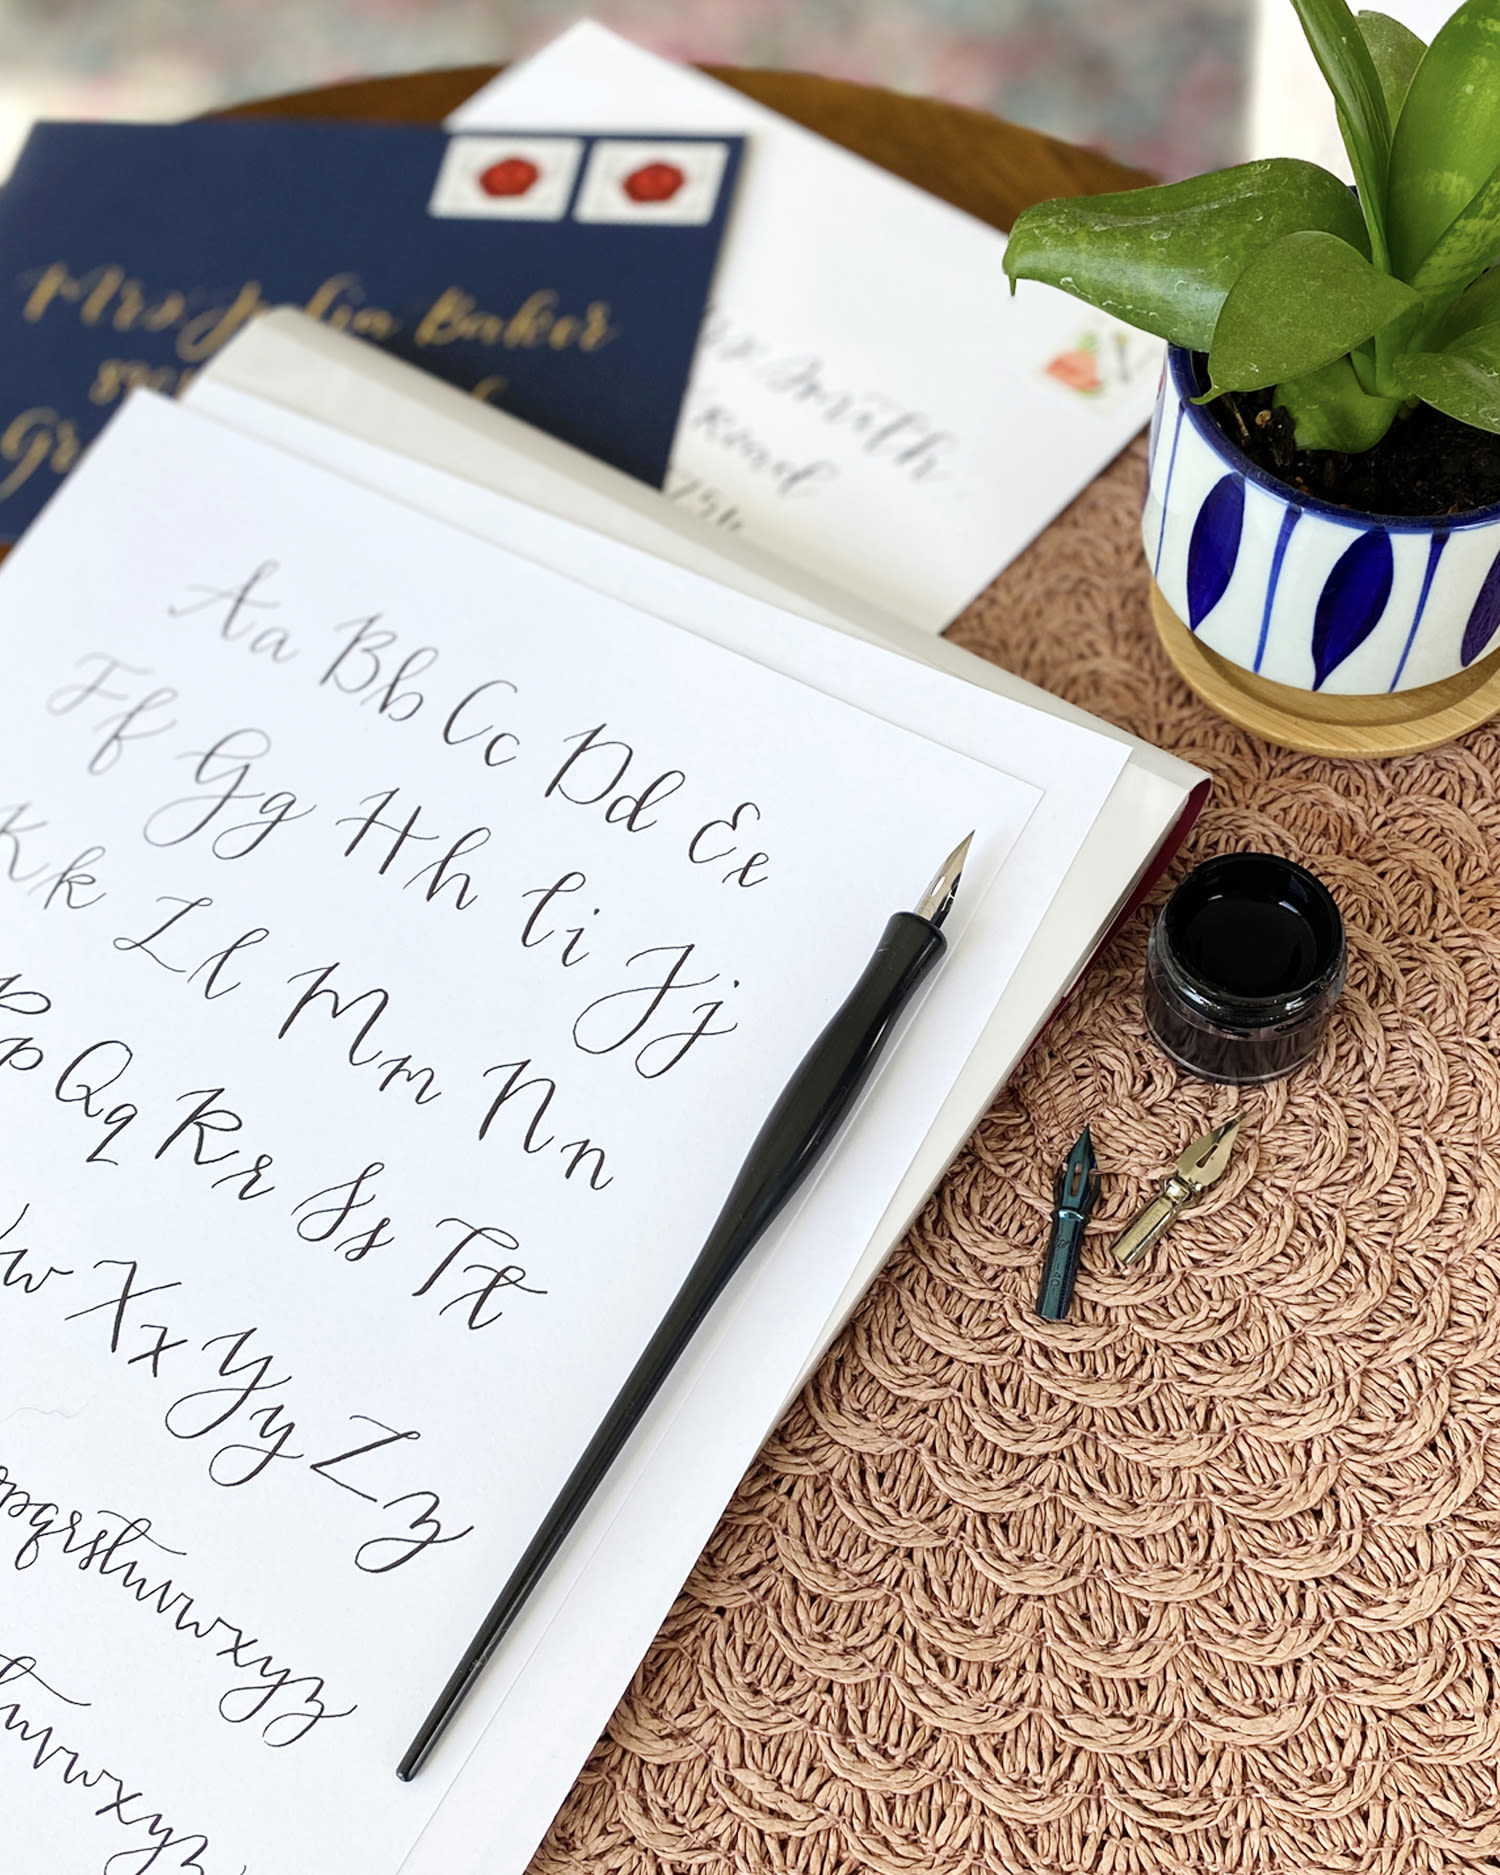 Mrs Julia Baker
Gr
Smith
Road
Aa Bb Cc Dd Ee
Ff Gg Hh Ii Jj
Kk Ll Mm Nn
Pp Qq Rr Ss Tt
w Xx Yy Zz
pqrstuvwxyz
tuvwxyz